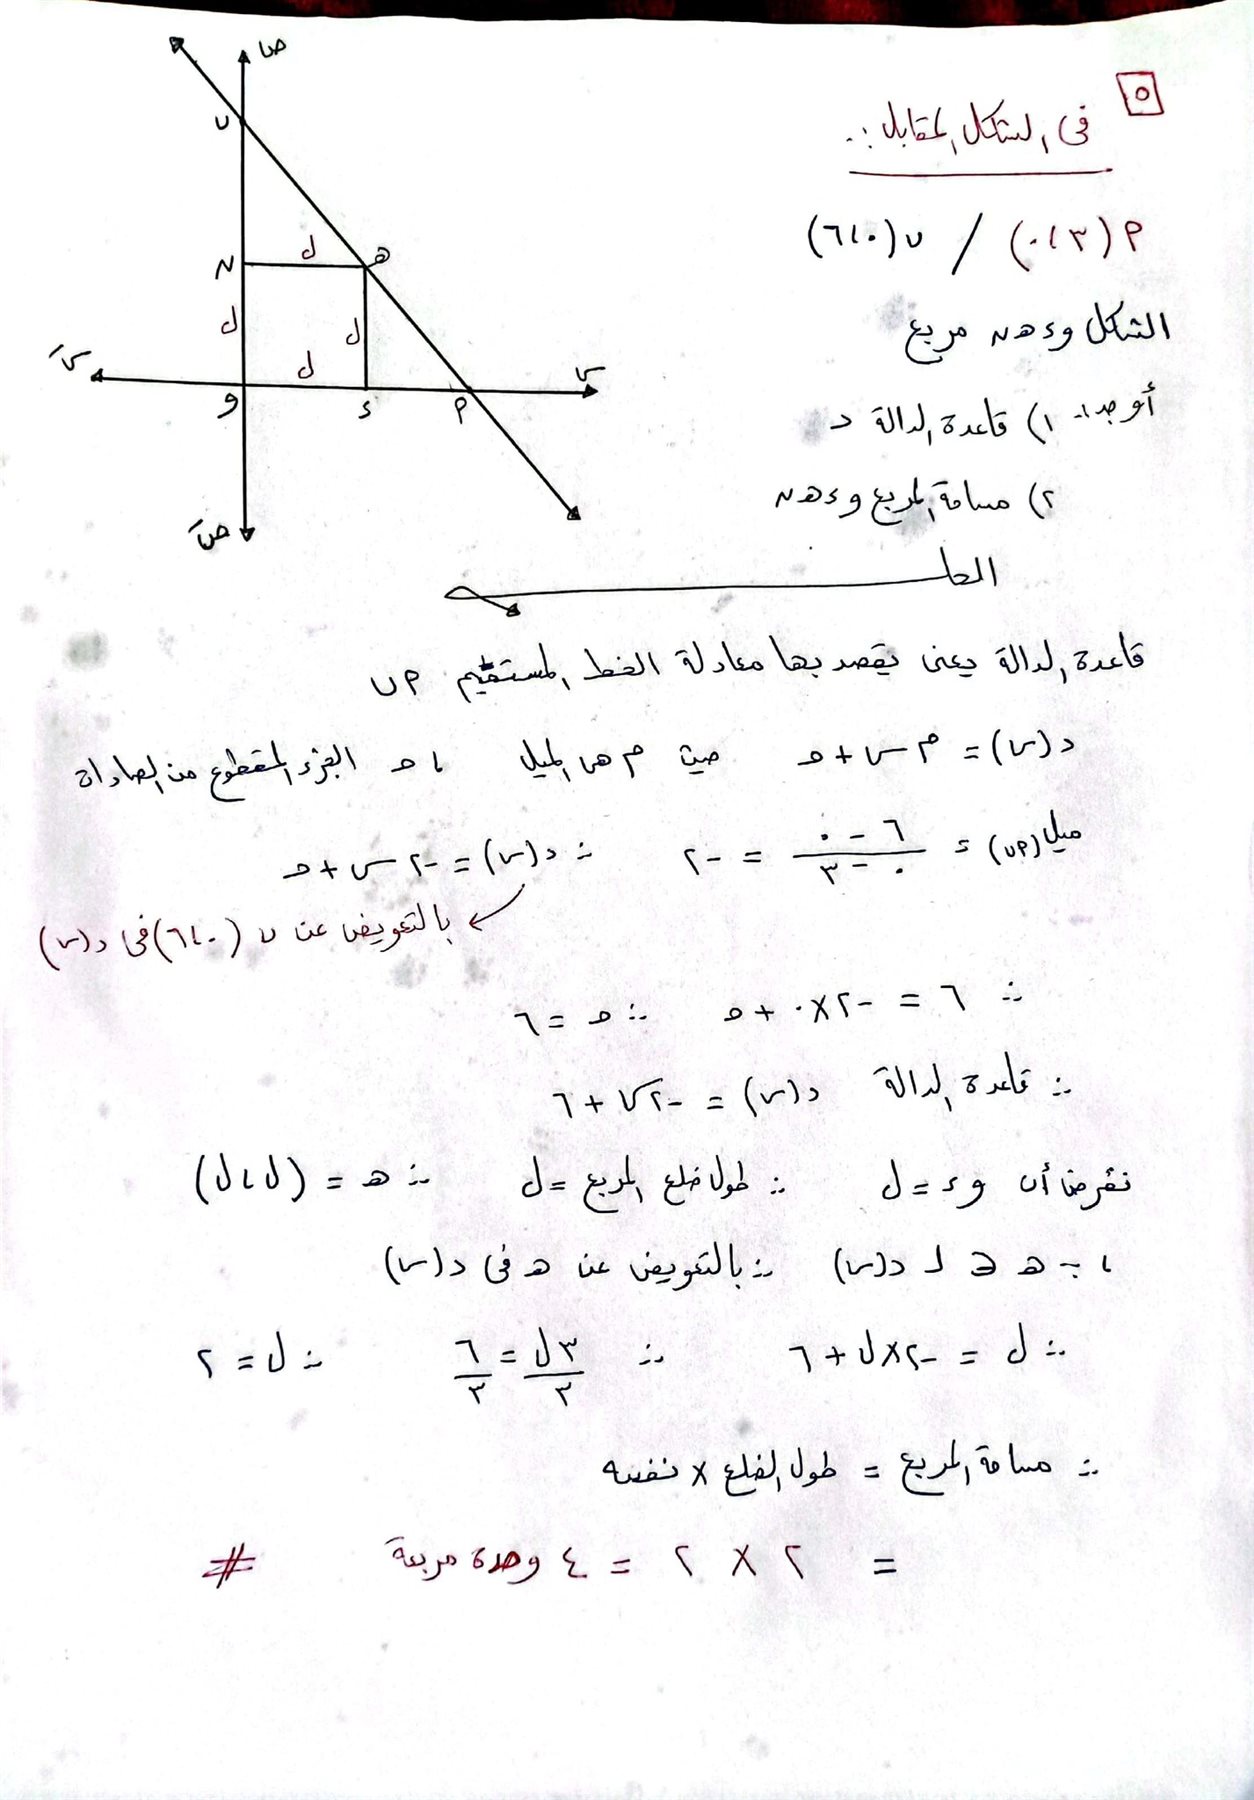 ٥
فى الشكل المقابل :.
م (٠،٣) / ن (٦،٠)
الشكل و ء هـ ن مربع
أوجد :- ١) قاعدة الدالة د
٢) مساحة المربع و ء هـ ن
الحل
قاعدة الدالة يعنى يقصد بها معادلة الخط المستقيم م ن
د(س) = م س + حـ حيث م هى الميل ، حـ الجزء المقطوع من الصادات
ميل (م ن) = (٦ - ٠) / (٠ - ٣) = -٢ ∴ د(س) = -٢ س + حـ
بالتعويض عن ن (٦،٠) فى د(س)
∴ ٦ = -٢×٠ + حـ ∴ حـ = ٦
∴ قاعدة الدالة د(س) = -٢س + ٦
نفرض أن و ء = ل ∴ طول ضلع المربع = ل ∴ هـ = (ل،ل)
، ∵ هـ ∈ لـ د(س) ∴ بالتعويض عن هـ فى د(س)
∴ ل = -٢×ل + ٦ ∴ ٣ل / ٣ = ٦ / ٣ ∴ ل = ٢
∴ مساحة المربع = طول الضلع × نفسه
= ٢ × ٢ = ٤ وحدة مربعة #
ص
ن
ن
ل
هـ
ل
ل
ل
سَ
س
و
ء
م
صَ